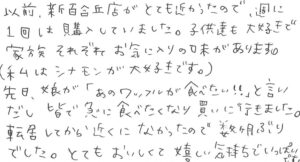 以前、新百合丘店がとても近かったので、週に
1回は購入していました。子供達も大好きで
家族それぞれお気に入りの味があります。
(私はシナモンが大好きです。)
先日、娘が「あのワッフルが食べたい!!」と言い
だし皆で急に食べたくなり買いに行きました。
転居してから近くになかったので数ヶ月ぶり
でした。とてもおいしくて嬉しい気持ちでいっぱい